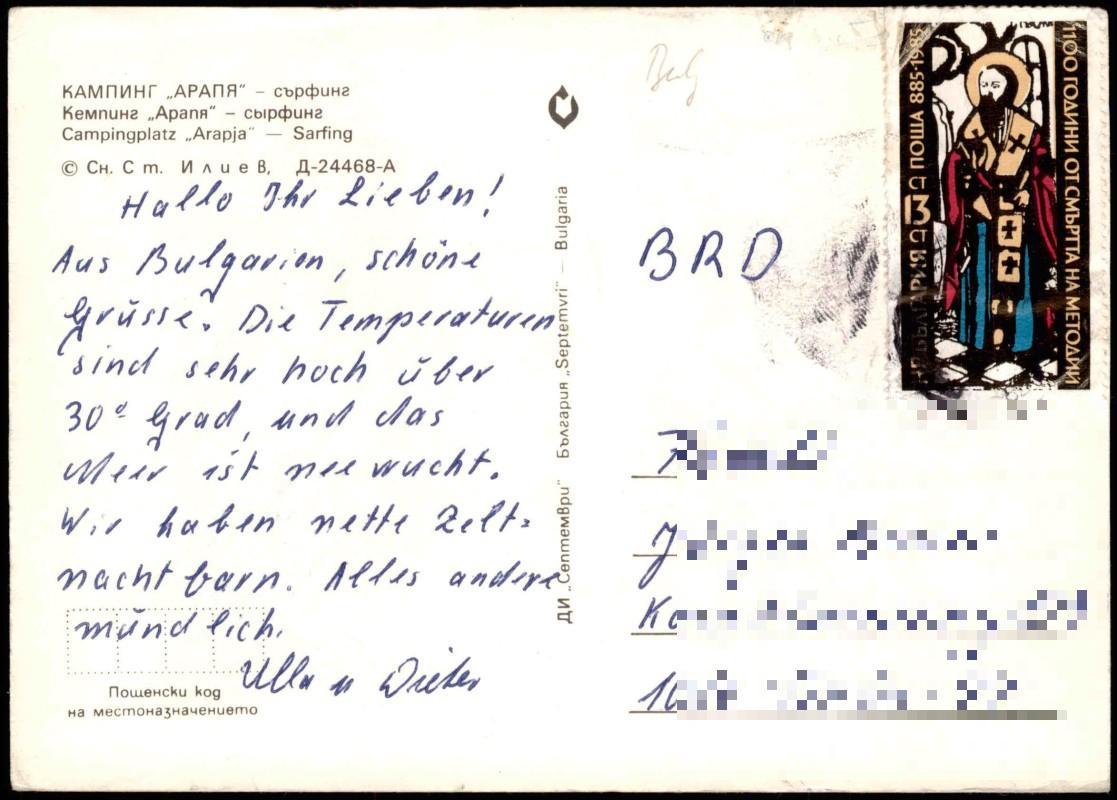 КАМПИНГ „АРАПЯ" – сърфинг
Кемпинг „Арапя" – сырфинг
Campingplatz „Arapja" — Sarfing
© Сн. Ст. Илиев, Д-24468-А
Hallo Ihr Lieben!
Aus Bulgarien, schöne
Grüsse. Die Temperaturen
sind sehr hoch über
30° Grad, und das
Meer ist nee wucht.
Wir haben nette Zelt=
nachtbarn. Alles andere
mündlich.
Ulla u Dieter
Пощенски код
на местоназначението
ДИ „Септември" България „Septemvri" — Bulgaria
Bulg
BRD
НР БЪЛГАРИЯ 13 ПОЩА 885·1985
1100 ГОДИНИ ОТ СМЪРТТА НА МЕТОДИЙ